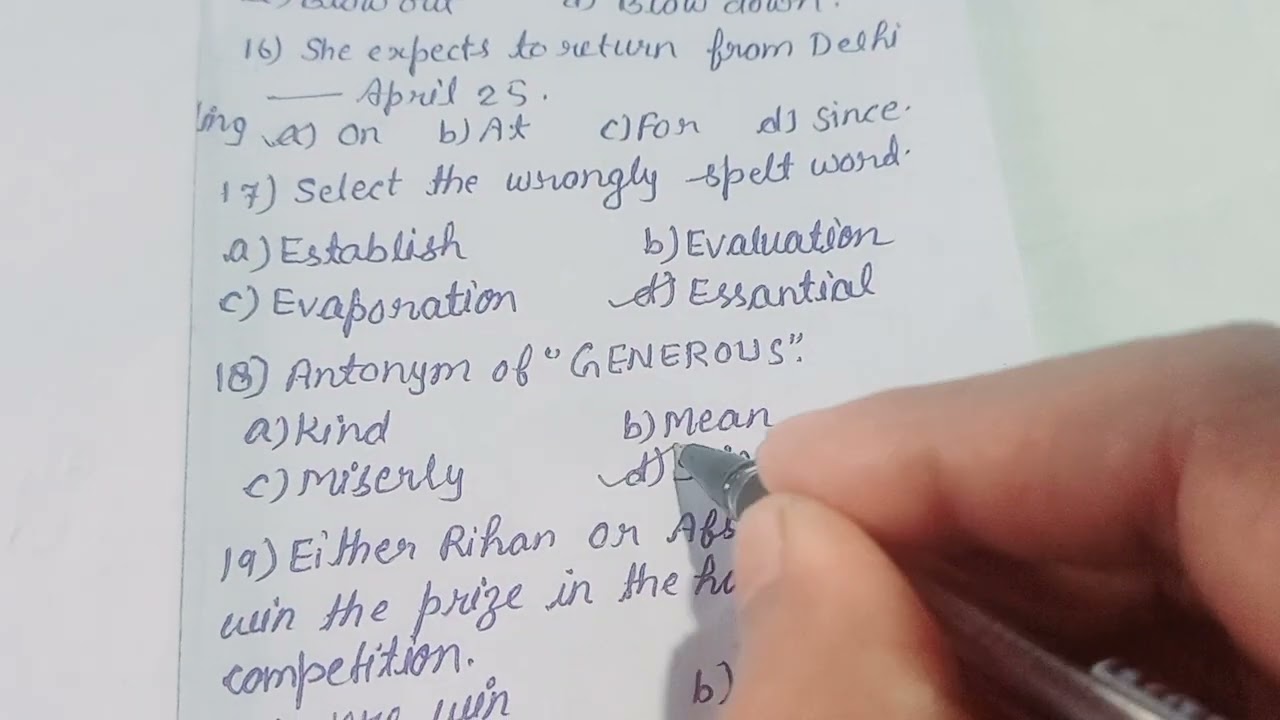 d) Blow down.
16) She expects to return from Delhi
— April 25.
a) On b) At c) For d) Since.
17) Select the wrongly spelt word.
a) Establish b) Evaluation
c) Evaporation d) Essantial
18) Antonym of "GENEROUS".
a) Kind b) Mean
c) Miserly d)
19) Either Rihan or
win the prize in the
competition.
win b)